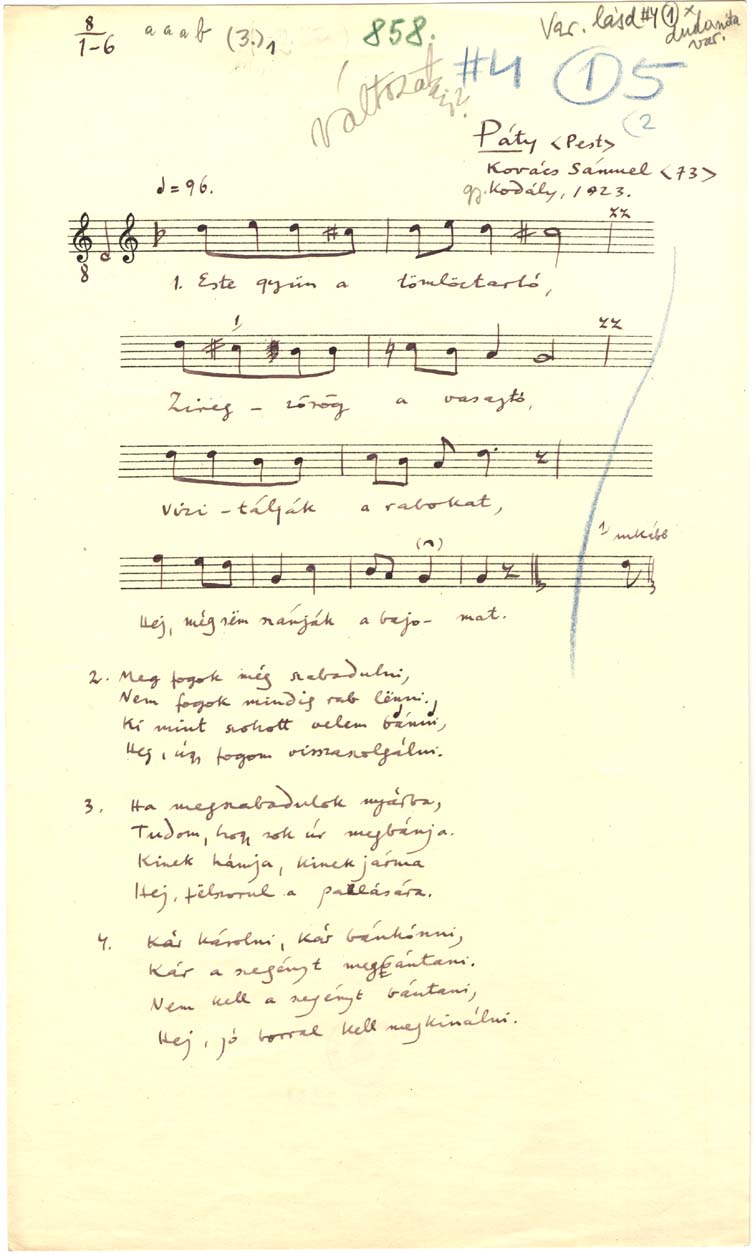 8
1-6
a a a b (3.)1
858.
Var. lásd #4 ① x
dudanóta
var.
változat
#4
① 5
(2
Páty <Pest>
Kovács Sámuel <73>
gy. Kodály, 1923.
= 96.
8
1. Este gyün a tömlöctartó,
1
Zireg - zörög a vasajtó,
Vizi - tálják a rabokat,
1 inkább
Hej, mégsëm szánják a bajo- mat.
2. Meg fogok még szabadulni,
Nem fogok mindig rab lënni,
Ki mint szokott velem bánni,
Hej, úgy fogom visszaszolgálni.
3. Ha megszabadulok nyárba,
Tudom, hogy sok úr megbánja.
Kinek hámja, kinek járma
Hej, fëlszorul a pallására.
4. Kár károlni, kár bánkónni,
Kár a szegényt megbántani.
Nem kell a szegényt bántani,
Hej, jó borral kell megkinálni.